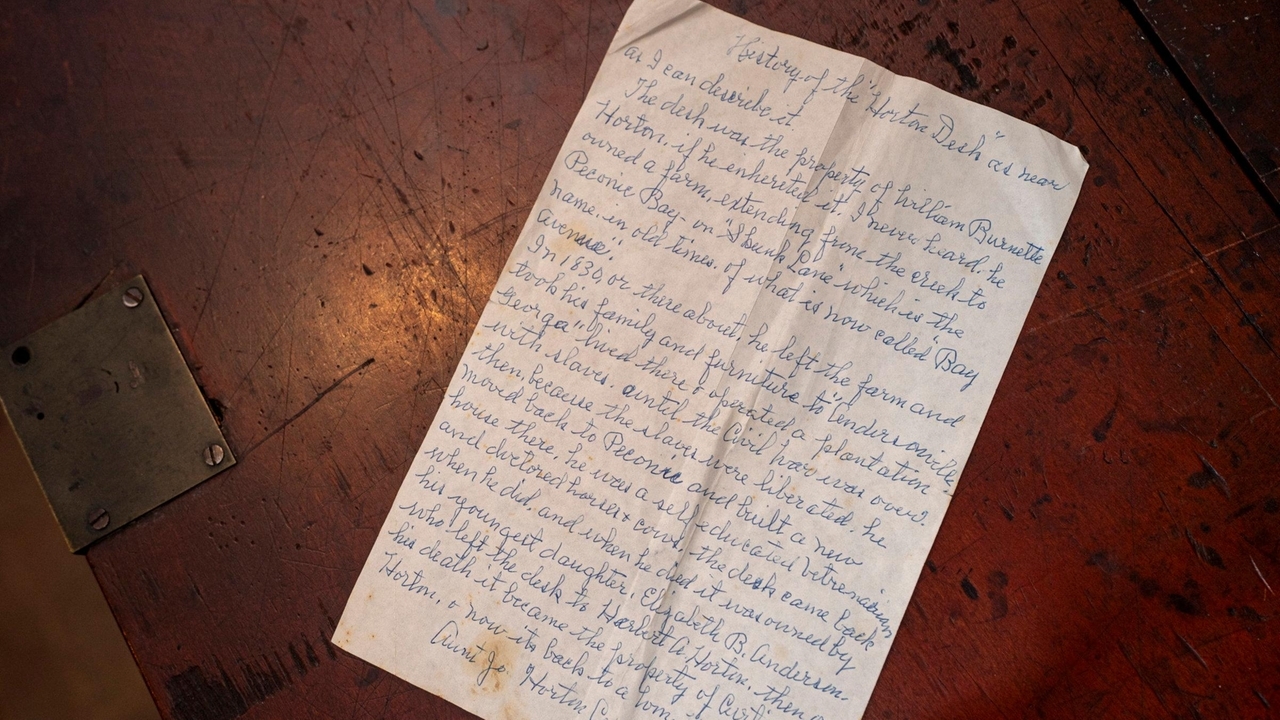 History of the "Horton Desk" as near
as I can describe it.
The desk was the property of William Burnette
Horton, if he enherited it, I never heard. he
owned a farm, extending from the creek to
Peconic Bay - on "Skunk Lane" which is the
name, in old times, of what is now called "Bay
Avenue".
In 1830, or there about, he left the farm and
took his family and furniture to "Andersonville,
Georga" lived there & operated a plantation
with slaves, until the Civil War was over.
then, because the slaves were liberated, he
moved back to Peconic and built a new
house there, he was a self educated vetrenarian
and doctored horses & cows, the desk came back
when he did, and when he died it was owned by
his youngest daughter, Elizabeth B. Anderson
who left the desk to Harbert A Horton, then
his death it became the property of
Horton, & now its back to a
Aunt Jo Horton